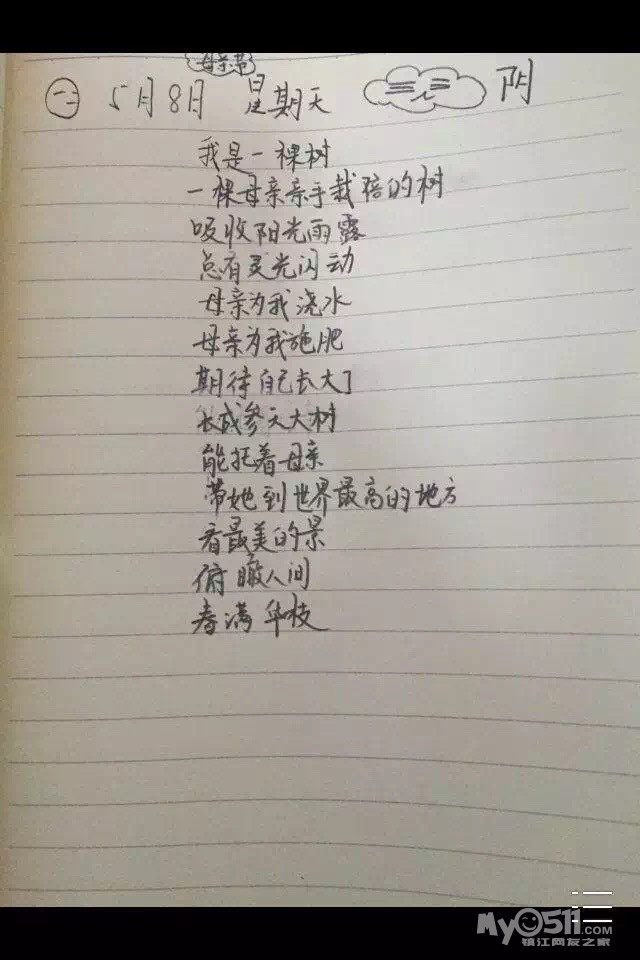 母亲节
㊁ 5月8日 星期天 阴
我是一棵树
一棵母亲亲手栽培的树
吸收阳光雨露
总有灵光闪动
母亲为我浇水
母亲为我施肥
期待自己长大了
长成参天大树
能托着母亲
带她到世界最高的地方
看最美的景
俯瞰人间
春满华枝
My0511.COM
镇江网友之家